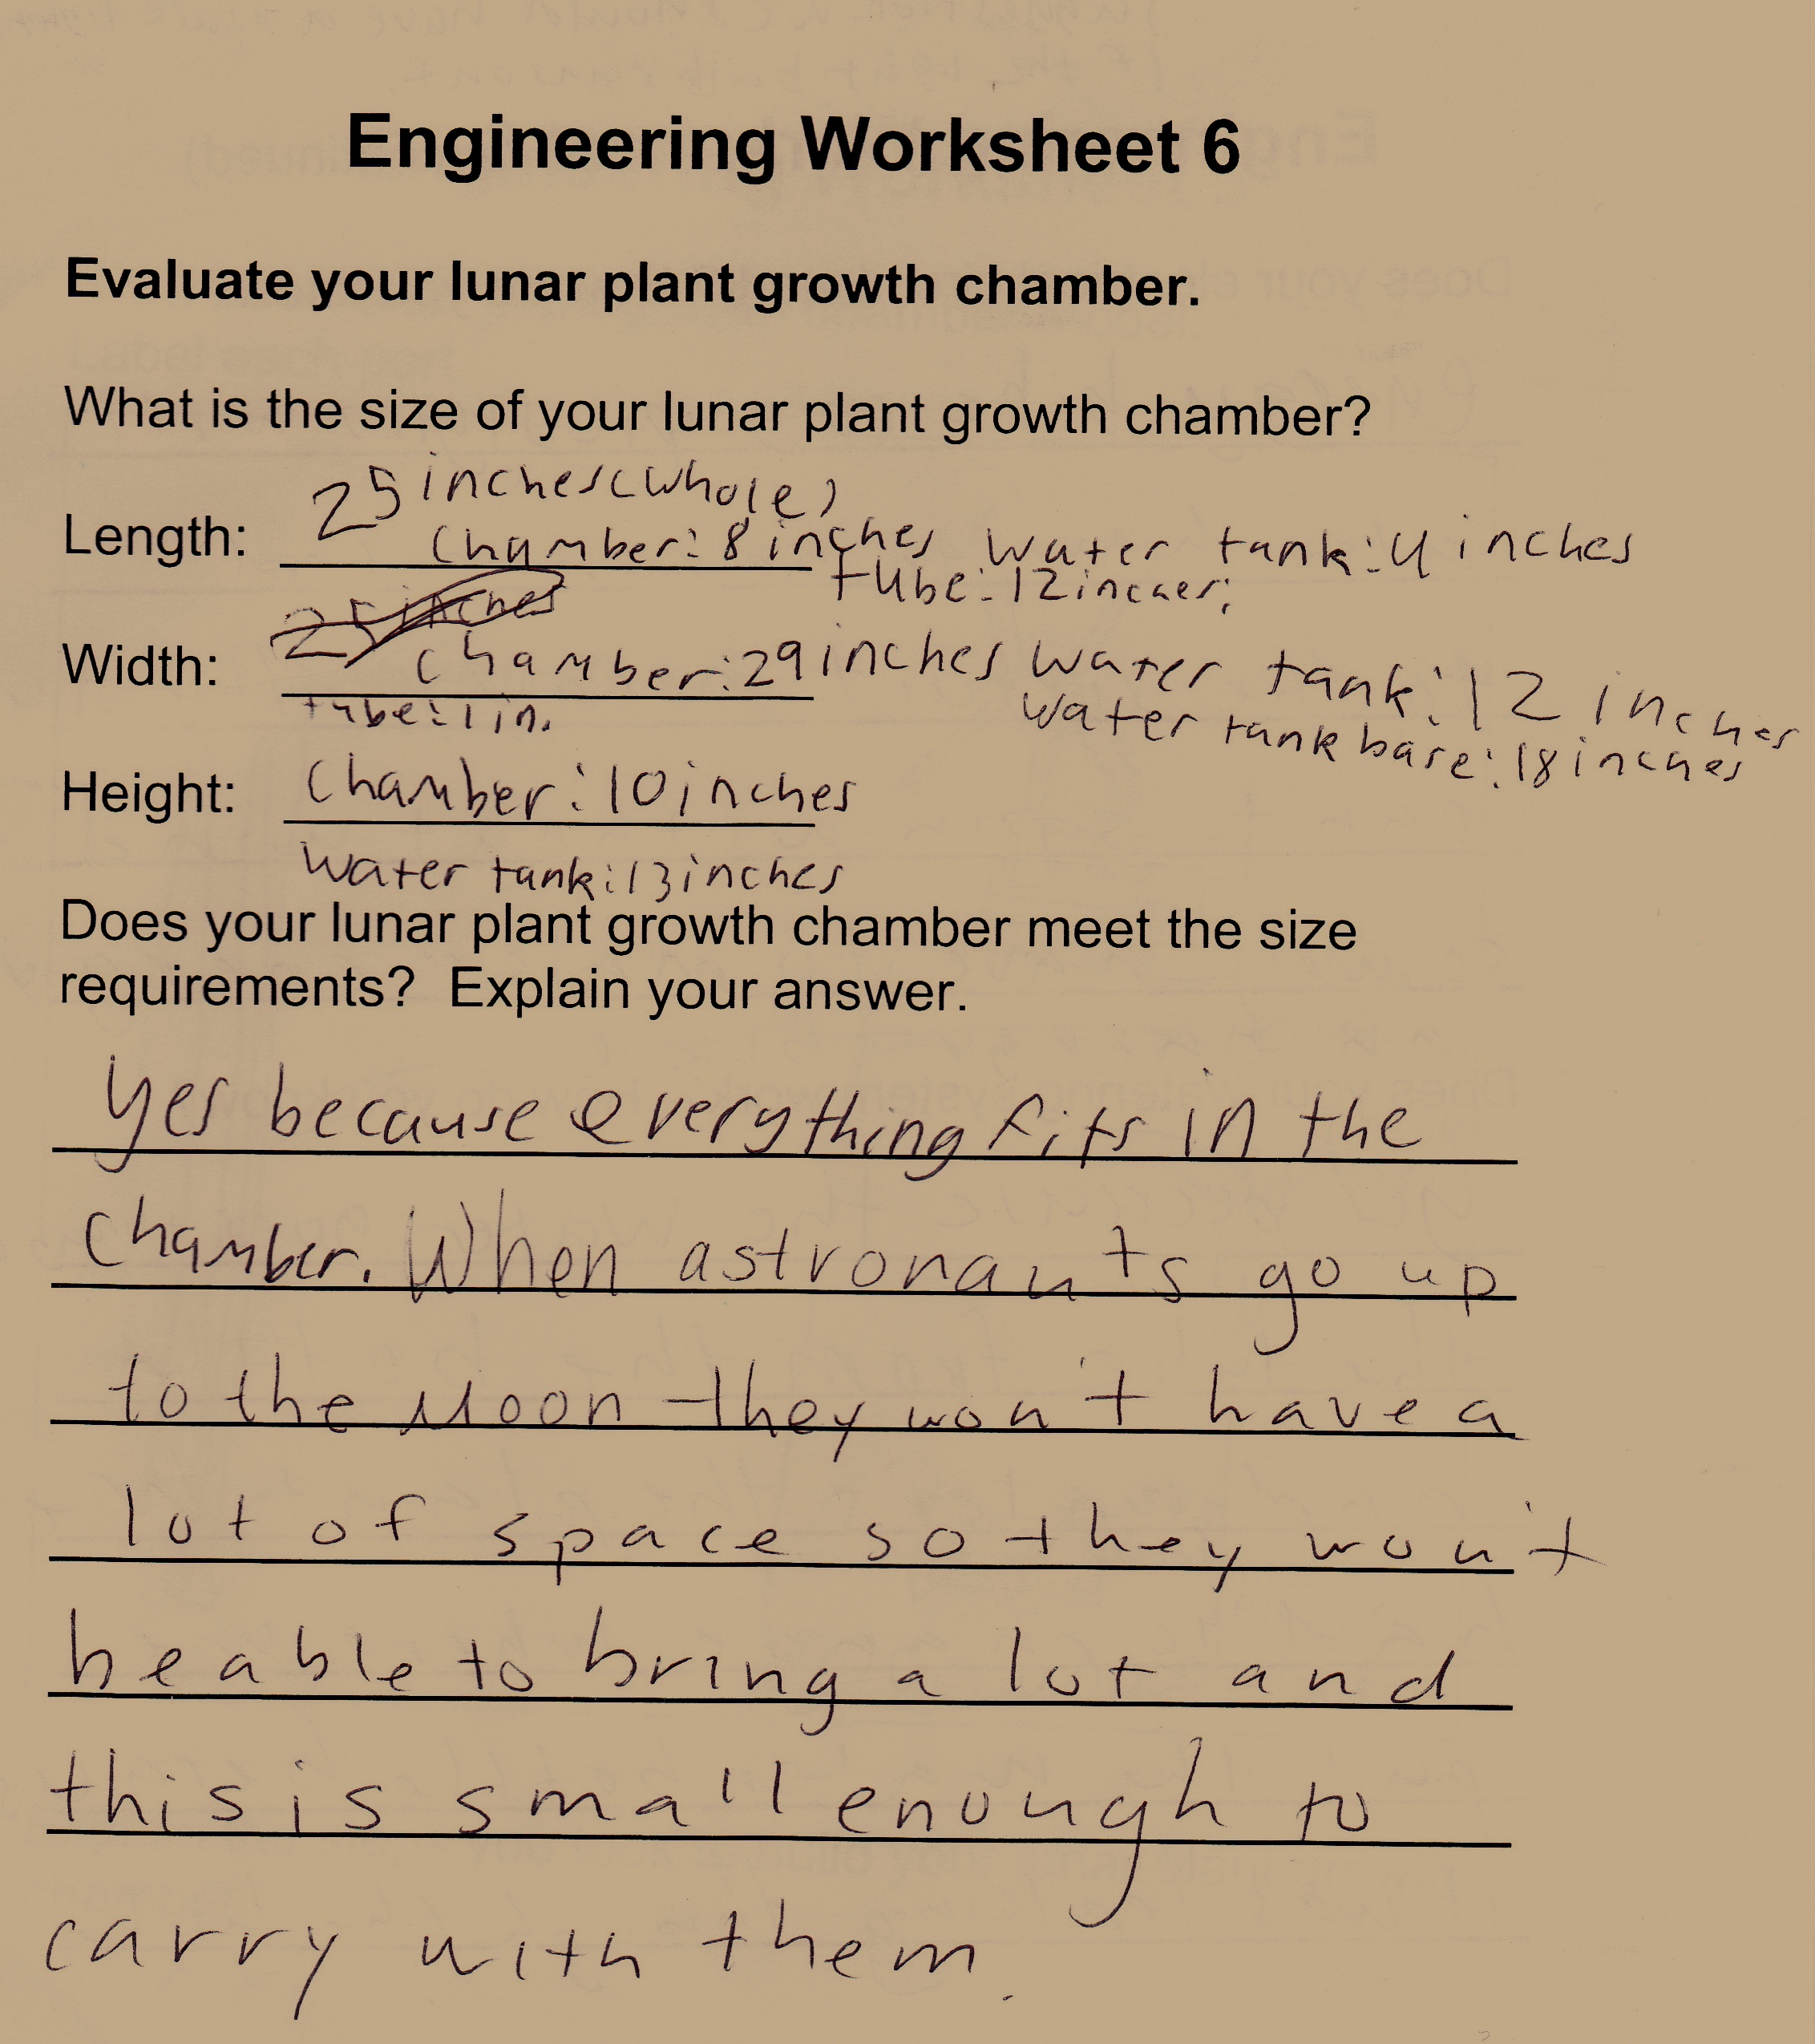 Engineering Worksheet 6
Evaluate your lunar plant growth chamber.
What is the size of your lunar plant growth chamber?
25 inches (whole)
Length: Chamber: 8 inches Water tank: 4 inches
tube: 12 inches;
25 inches
Width: Chamber: 29 inches Water tank: 12 inches
tube: 1 in. Water tank base: 18 inches
Height: Chamber: 10 inches
Water tank: 13 inches
Does your lunar plant growth chamber meet the size
requirements? Explain your answer.
Yes because everything fits in the
Chamber. When astronauts go up
to the Moon they won't have a
lot of space so they won't
be able to bring a lot and
this is small enough to
carry with them.